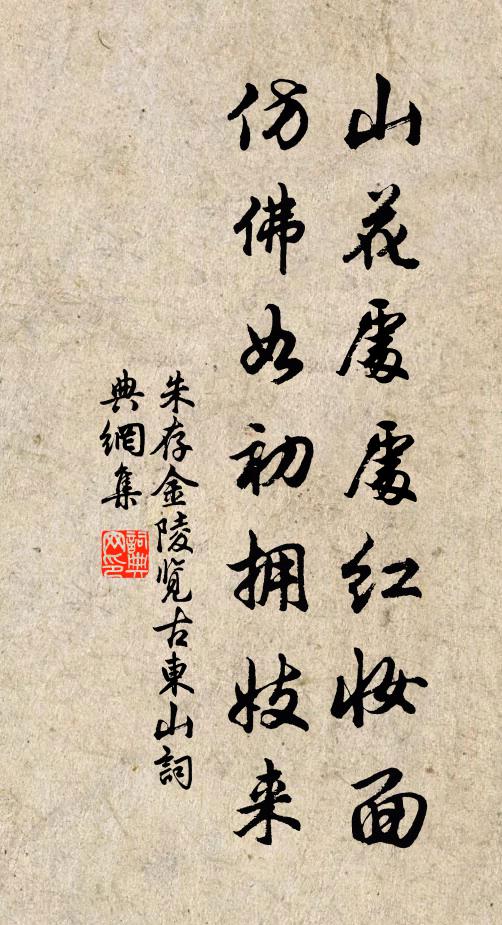 山花處處红妆面
仿佛如初拥妓来
朱存金陵览古東山詞
典網集
詞典
网印